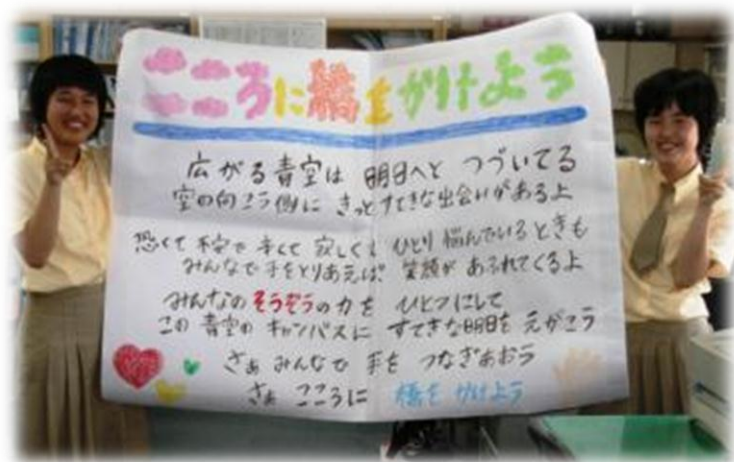 こころに橋をかけよう
広がる青空は 明日へと つづいてる
空の向こう側に きっとすてきな出会いがあるよ
恐くて 不安で 辛くて 寂しくて ひとり 悩んでいるときも
みんなで 手をとりあえば 笑顔が あふれてくるよ
みんなの そうぞうの力を ひとつにして
この 青空の キャンバスに すてきな明日を えがこう
さぁ みんなで 手を つなぎあおう
さぁ こころに 橋を かけよう